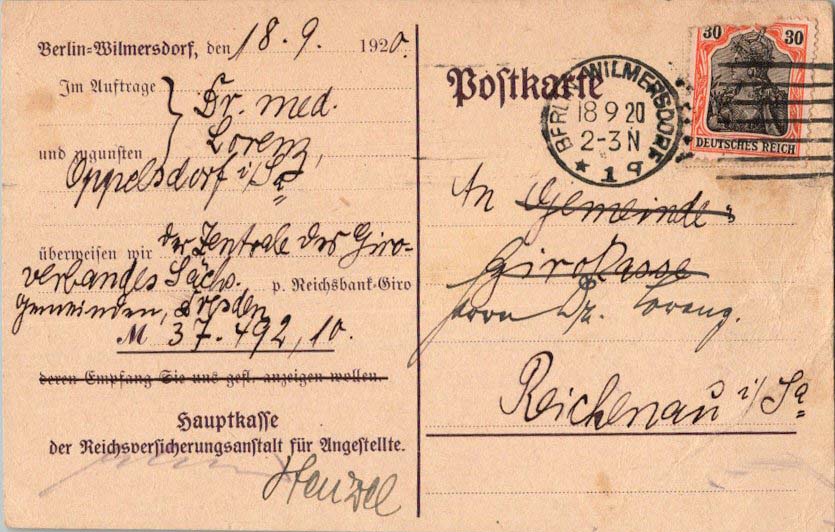 Berlin-Wilmersdorf, den 18. 9. 1920.
Im Auftrage } Dr. med.
und zugunsten Lorenz,
Oppelsdorf i/Sa
überweisen wir der Zentrale des Giro-
verbandes Sächs. p. Reichsbank-Giro
Gemeinden, Dresden
M 37.492,10.
deren Empfang Sie uns gefl. anzeigen wollen.
Hauptkasse
der Reichsversicherungsanstalt für Angestellte.
Postkarte
BERLIN-WILMERSDORF
18 9 20
2-3 N
* 1 q
30 30
DEUTSCHES REICH
An Gemeinde-
Girokasse
Herrn Dr. Lorenz.
Reichenau i/Sa